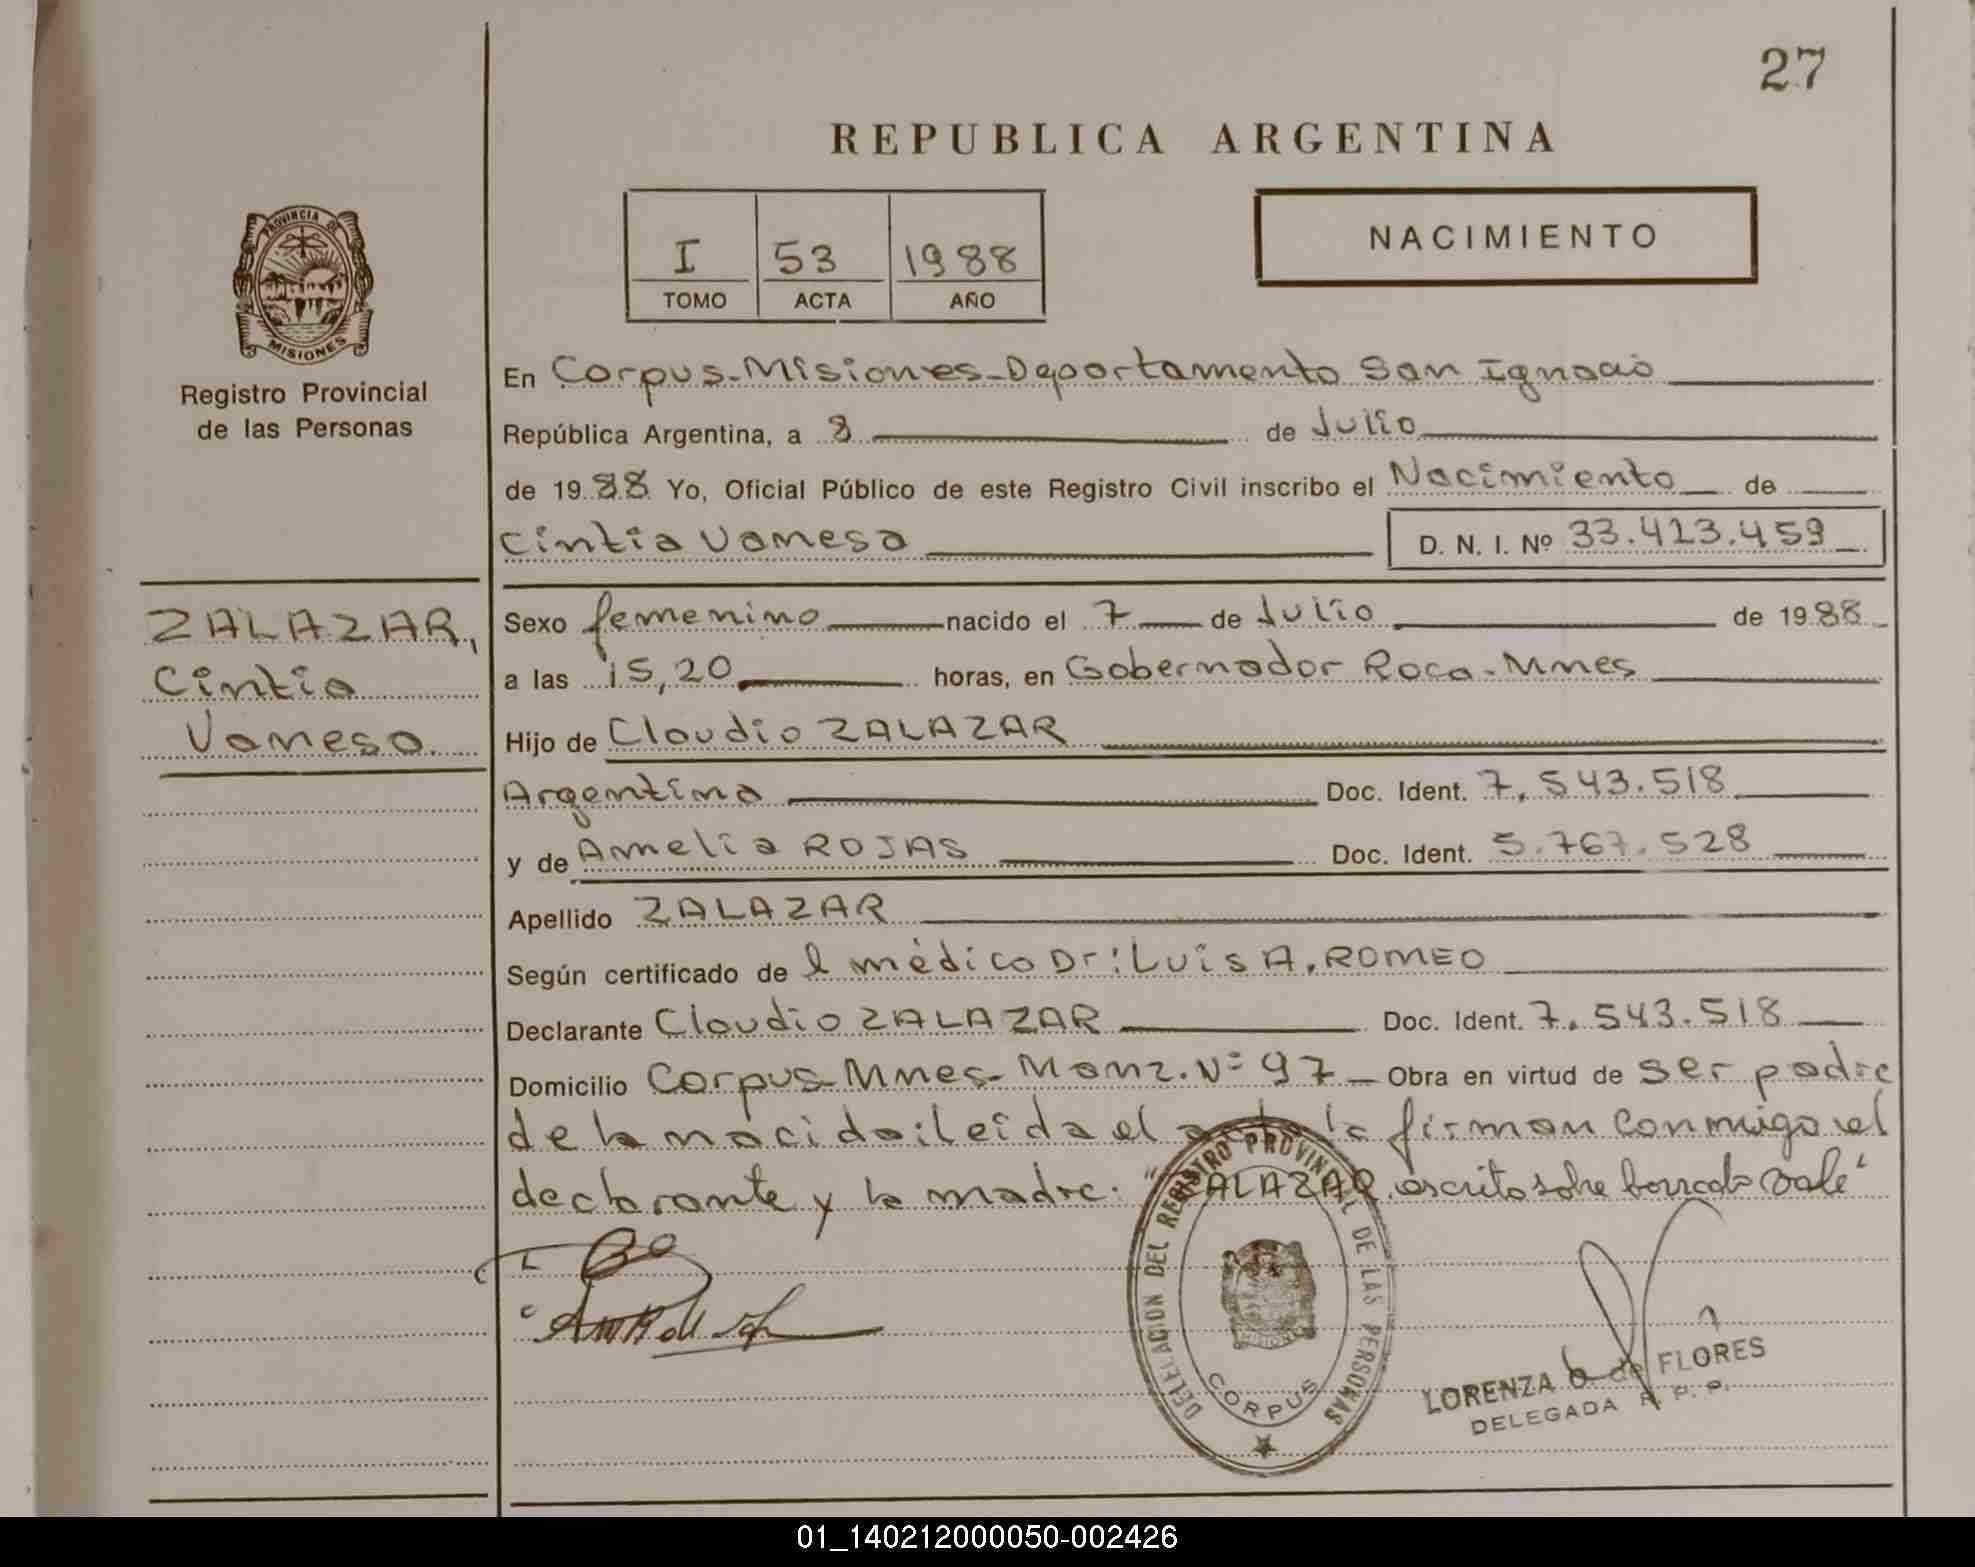 27
REPUBLICA ARGENTINA
I 53 1988
TOMO ACTA AÑO
NACIMIENTO
PROVINCIA DE
MISIONES
Registro Provincial
de las Personas
En Corpus-Misiones-Departamento San Ignacio
República Argentina, a 8 de Julio
de 1988 Yo, Oficial Público de este Registro Civil inscribo el Nacimiento de
Cintia Vanesa D. N. I. Nº 33.413.459
ZALAZAR,
Cintia
Vanesa.
Sexo femenino nacido el 7 de Julio de 1988
a las 15,20 horas, en Gobernador Roca-Mnes
Hijo de Claudio ZALAZAR
Argentina Doc. Ident. 7.543.518
y de Amelia ROJAS Doc. Ident. 5.767.528
Apellido ZALAZAR
Según certificado de l médico Dr: Luis A. ROMEO
Declarante Claudio ZALAZAR Doc. Ident. 7.543.518
Domicilio Corpus-Mnes-Manz. Nº 97 Obra en virtud de ser padre
de la nacida: leida el acta la firman conmigo el
declarante y la madre: "ZALAZAR escrito sobre borrado vale"
DELELACION DEL REGISTRO PROVINCIAL DE LAS PERSONAS
CORPUS
LORENZA de FLORES
DELEGADA R. P. P.
01_140212000050-002426